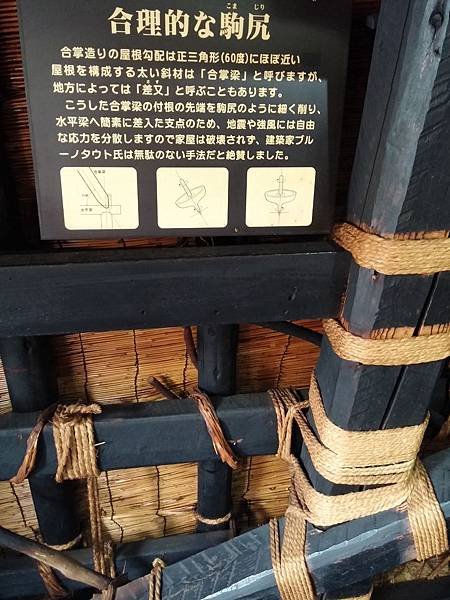 合理的な駒尻
こま じり
合掌造りの屋根勾配は正三角形(60度)にほぼ近い
屋根を構成する太い斜材は「合掌梁」と呼びますが、
地方によっては「差又」と呼ぶこともあります。
こうした合掌梁の付根の先端を駒尻のように細く削り、
水平梁へ簡素に差入た支点のため、地震や強風には自由
な応力を分散しますので家屋は破壊されず、建築家ブル
ーノタウト氏は無駄のない手法だと絶賛しました。
合掌梁